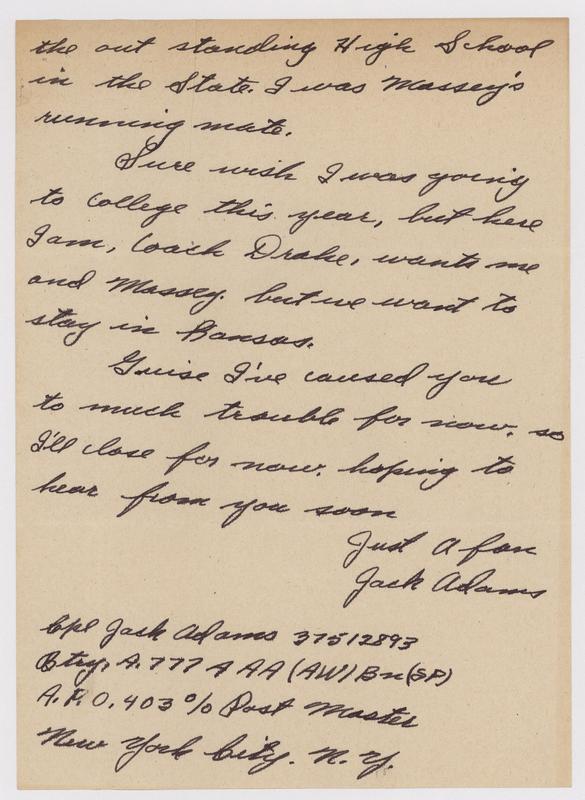 the out standing High School
in the State. I was Massey's
running mate.
Sure wish I was going
to college this year, but here
I am, Coach Drake, wants me
and Massey. but we want to
stay in Kansas.
Guise I've caused you
to much trouble for now. so
I'll close for now. hoping to
hear from you soon
Just a fan
Jack Adams
Cpl Jack Adams 37512893
Btry. A. 777 A AA (AW) Bn (SP)
A.P.O. 403 % Post Master
New York City. N.Y.